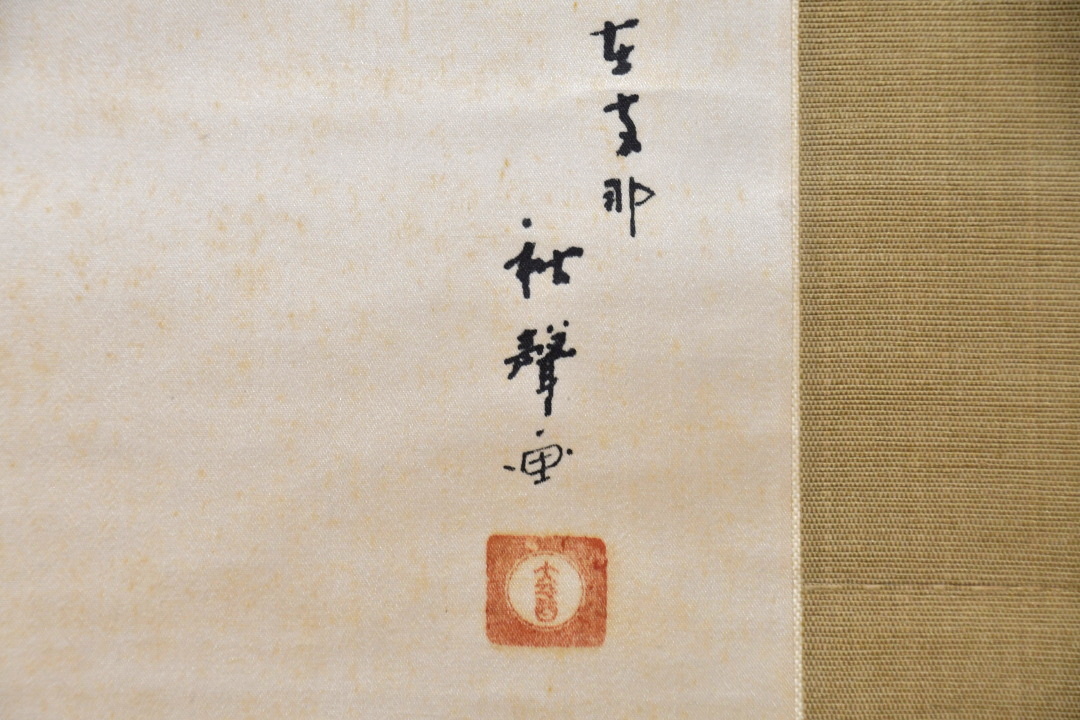 在支那
秋聲画